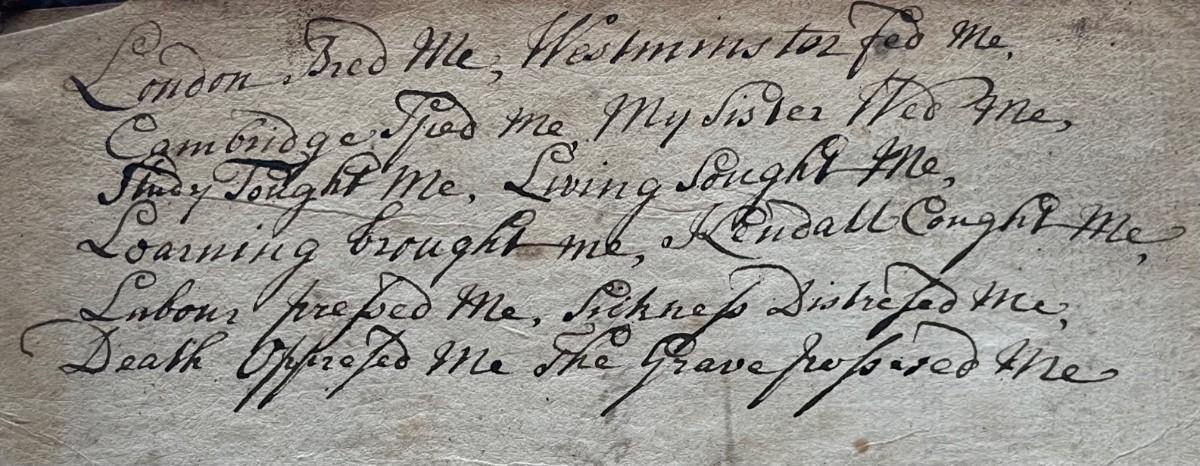 London Bred Me, Westminster fed Me,
Cambridge Sped me, My Sister Wed Me,
Study Tought Me, Living Sought Me,
Learning brought me, Kendall Cought Me,
Labour pressed Me, Sickness Distressed Me,
Death Oppressed Me The Grave possessed Me